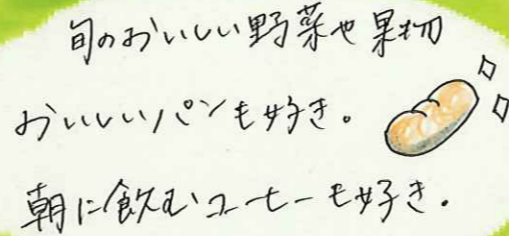 旬のおいしい野菜や果物
おいしいパンも好き。
朝に飲むコーヒーも好き.